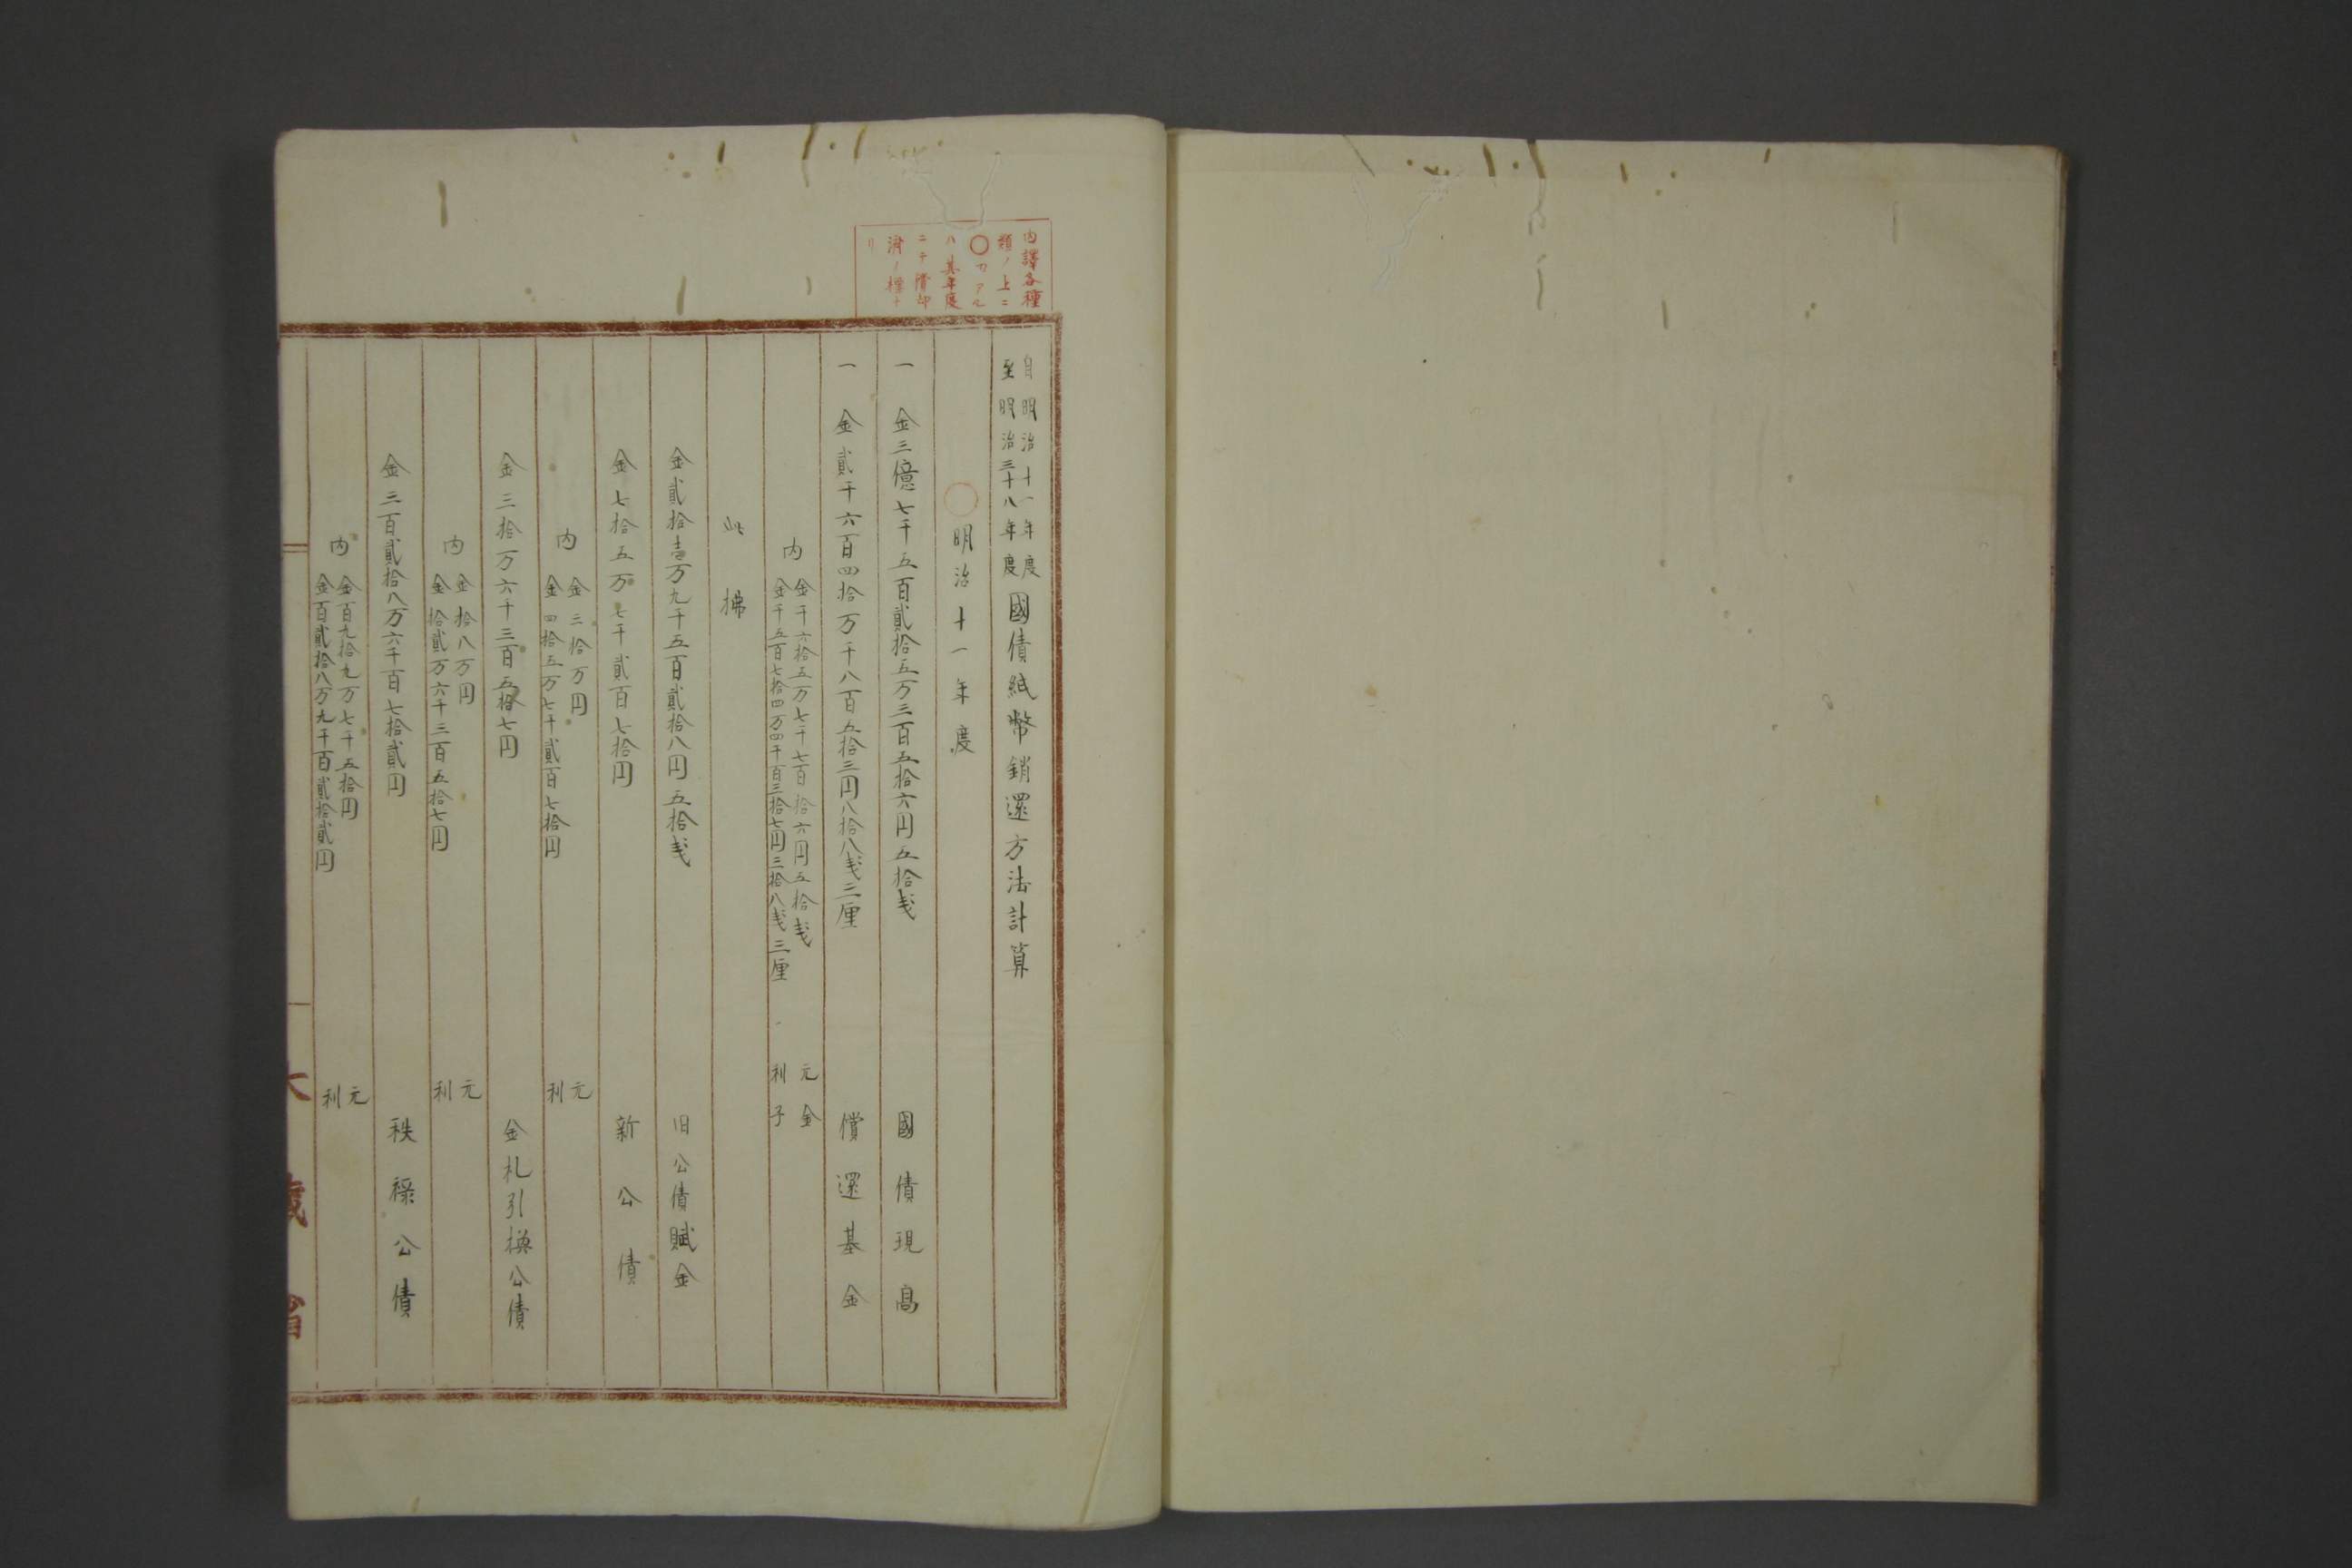 内譯各種
類ノ上ニ
〇カアル
ハ其年度
ニテ償却
濟ノ標ナ
リ
自明治十一年度
至明治三十八年度
國債紙幣銷還方法計算
〇明治十一年度
一金三億七千五百貳拾五万三百五拾六円五拾戔 國債現高
一金貳千六百四拾万千八百五拾三円八拾八戔三厘 償還基金
内
金千六拾五万七千七百拾六円五拾戔 元金
金千五百七拾四万四千百三拾七円三拾八戔三厘 利子
此拂
金貳拾壱万九千五百貳拾八円五拾戔 旧公債賦金
金七拾五万七千貳百七拾円 新公債
内
金三拾万円 元
金四拾五万七千貳百七拾円 利
金三拾万六千三百五拾七円 金札引換公債
内
金拾八万円 元
金拾貳万六千三百五拾七円 利
金三百貳拾八万六千百七拾貳円 秩禄公債
内
金百九拾九万七千五拾円 元
金百貳拾八万九千百貳拾貳円 利
大藏省